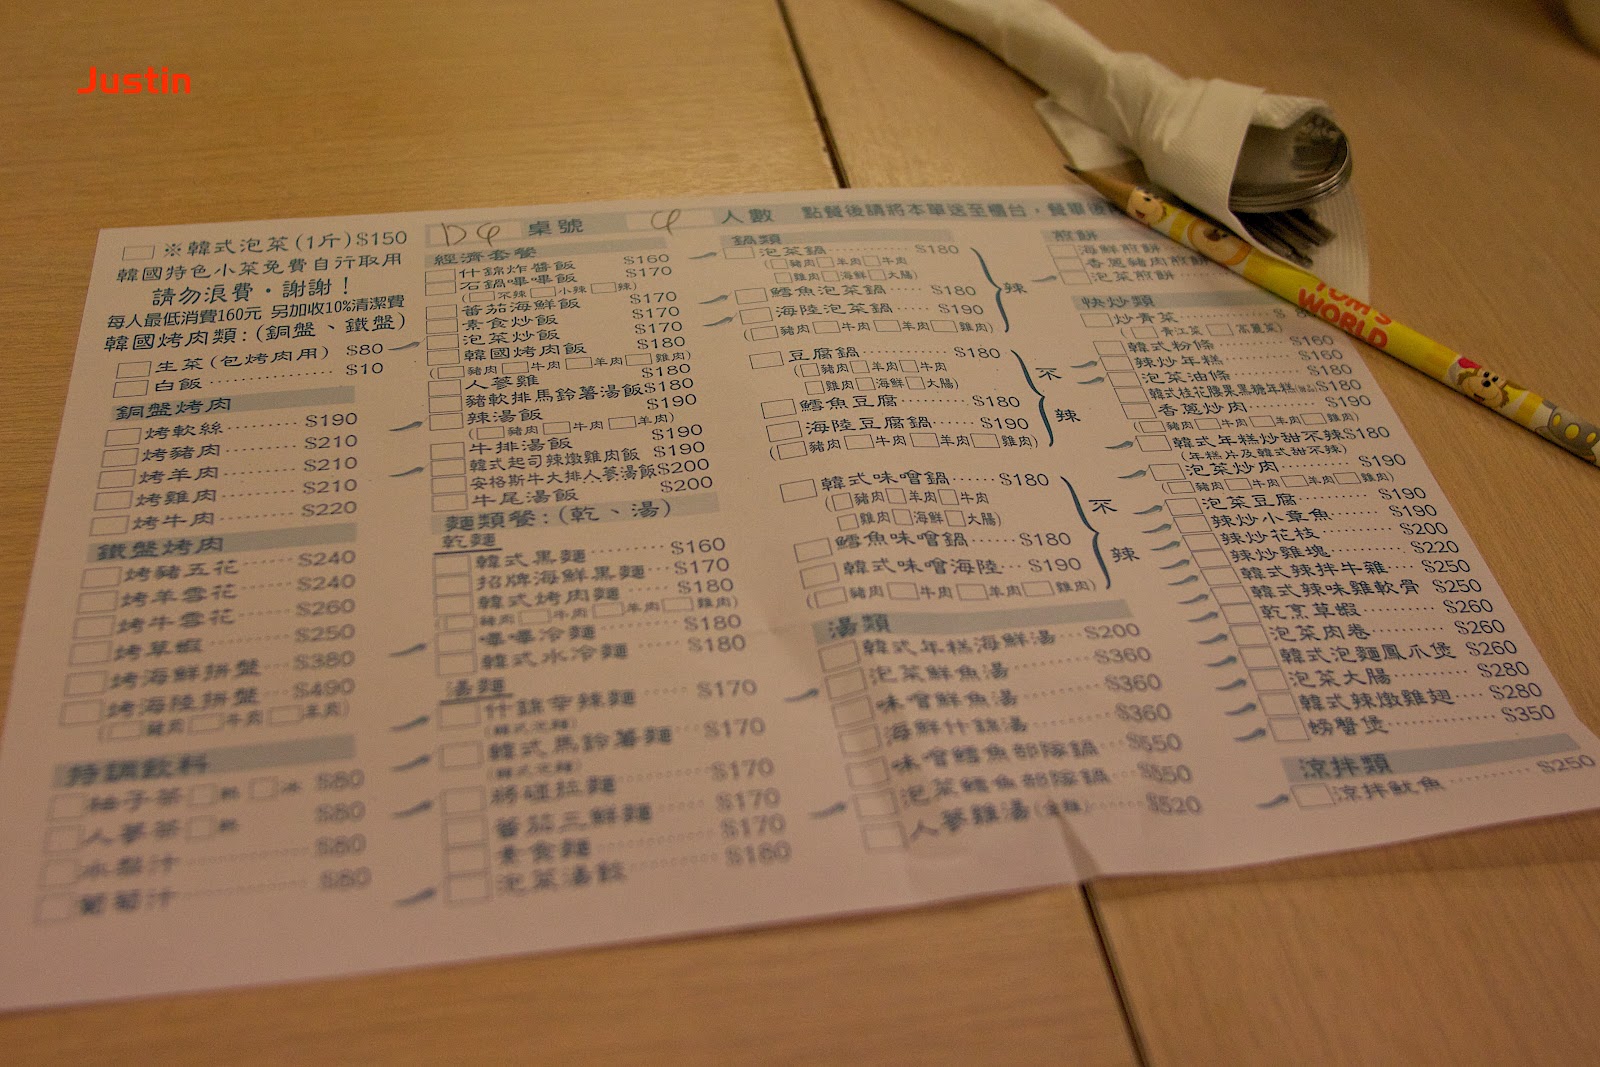 Justin
※韓式泡菜(1斤)$150
韓國特色小菜免費自行取用
請勿浪費,謝謝!
每人最低消費160元 另加收10%清潔費
韓國烤肉類:(銅盤、鐵盤)
生菜(包烤肉用) $80
白飯 $10
銅盤烤肉
烤軟絲 $190
烤豬肉 $210
烤羊肉 $210
烤雞肉 $210
烤牛肉 $220
鐵盤烤肉
烤豬五花 $240
烤羊雪花 $240
烤牛雪花 $260
烤草蝦 $250
烤海鮮拼盤 $380
烤海陸拼盤 $490
(豬肉 牛肉 羊肉)
特調飲料
柚子茶 熱 冰 $80
人蔘茶 熱 $80
水梨汁 $80
葡萄汁 $80
D4 桌號 4 人數 點餐後請將本單送至櫃台,餐畢後
經濟套餐
什錦炸醬飯 $160
石鍋嗶嗶飯 $170
(不辣 小辣 辣)
蕃茄海鮮飯 $170
素食炒飯 $170
泡菜炒飯 $170
韓國烤肉飯 $180
(豬肉 牛肉 羊肉 雞肉)
人蔘雞 $180
豬軟排馬鈴薯湯飯$180
辣湯飯 $190
(豬肉 牛肉 羊肉)
牛排湯飯 $190
韓式起司辣燉雞肉飯 $190
安格斯牛大排人蔘湯飯$200
牛尾湯飯 $200
麵類餐:(乾、湯)
乾麵
韓式黑麵 $160
招牌海鮮黑麵 $170
韓式烤肉麵 $180
(豬肉 牛肉 羊肉 雞肉)
嗶嗶冷麵 $180
韓式水冷麵 $180
湯麵
什錦辛辣麵 $170
韓式馬鈴薯麵 $170
將碰拉麵 $170
蕃茄三鮮麵 $170
素食麵 $170
泡菜湯餃 $180
鍋類
泡菜鍋 $180
(豬肉 羊肉 牛肉
雞肉 海鮮 大腸)
鱈魚泡菜鍋 $180
海陸泡菜鍋 $190
(豬肉 牛肉 羊肉 雞肉)
辣
豆腐鍋 $180
(豬肉 羊肉 牛肉
雞肉 海鮮 大腸)
鱈魚豆腐 $180
海陸豆腐鍋 $190
(豬肉 牛肉 羊肉 雞肉)
不辣
韓式味噌鍋 $180
(豬肉 羊肉 牛肉
雞肉 海鮮 大腸)
鱈魚味噌鍋 $180
韓式味噌海陸 $190
(豬肉 牛肉 羊肉 雞肉)
不辣
湯類
韓式年糕海鮮湯 $200
泡菜鮮魚湯 $360
味噌鮮魚湯 $360
海鮮什錦湯 $360
味噌鱈魚部隊鍋 $550
泡菜鱈魚部隊鍋 $550
人蔘雞湯(全雞) $520
煎餅
海鮮煎餅
香蔥豬肉煎餅
泡菜煎餅
快炒類
炒青菜
(青江菜 高麗菜)
韓式粉條 $160
辣炒年糕 $160
泡菜油條 $180
韓式桂花腰果黑糖年糕(甜品)$180
香蔥炒肉 $190
(豬肉 牛肉 羊肉 雞肉)
韓式年糕炒甜不辣$180
(年糕片及韓式甜不辣)
泡菜炒肉 $190
(豬肉 牛肉 羊肉 雞肉)
泡菜豆腐 $190
辣炒小章魚 $190
辣炒花枝 $200
辣炒雞塊 $220
韓式辣拌牛雜 $250
韓式辣味雞軟骨 $250
乾烹草蝦 $260
泡菜肉卷 $260
韓式泡麵鳳爪煲 $260
泡菜大腸 $280
韓式辣燉雞翅 $280
螃蟹煲 $350
涼拌類
涼拌魷魚 $250
TOM'S WORLD